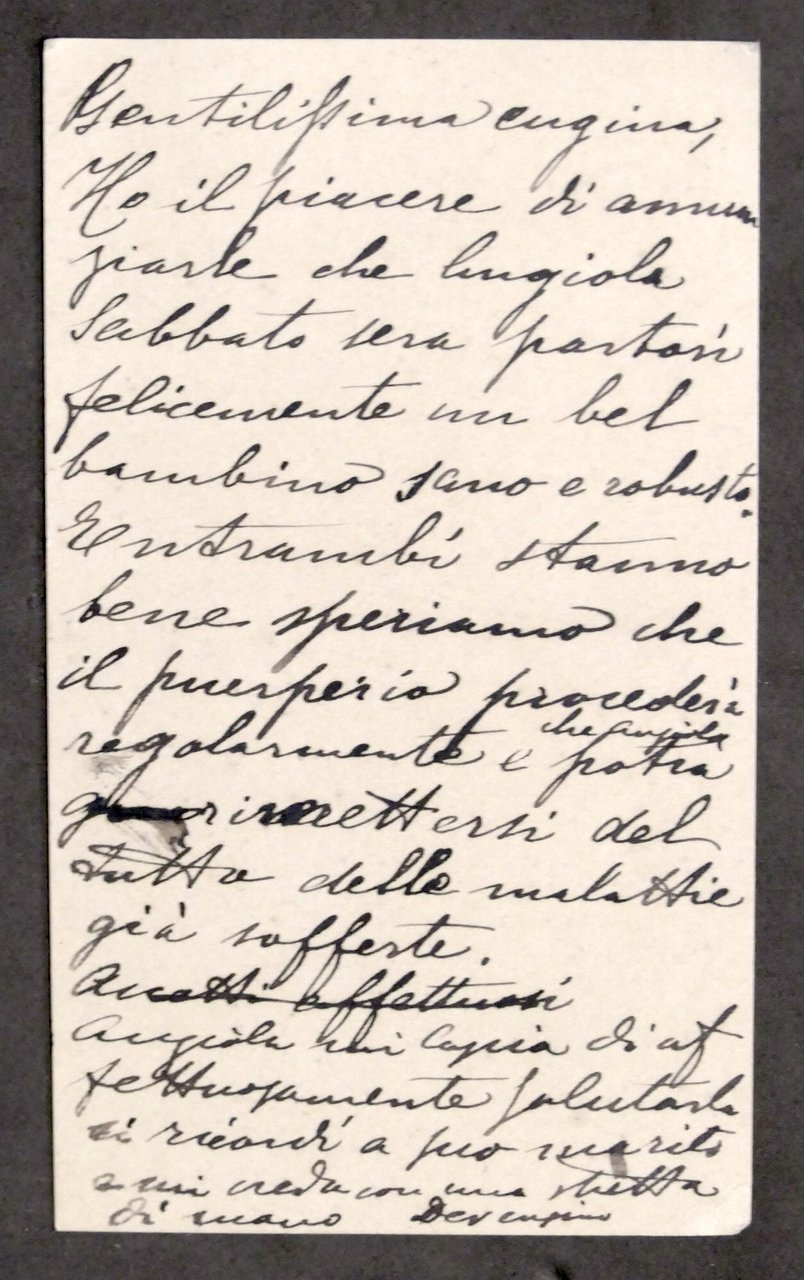 Gentilissima cugina,
Ho il piacere di annun
ziarle che Angiola
Sabbato sera partorì
felicemente un bel
bambino sano e robusto.
Entrambi stanno
bene speriamo che
il puerperio procederà
regolarmente e che Angiola potrà
rimettersi del
tutto delle malattie
già sofferte.
Accetti affettuosi
Angiola mi di af
fettuosamente salutarla
si ricordi a suo marito
e mi creda con una stretta
di mano Dev cugino